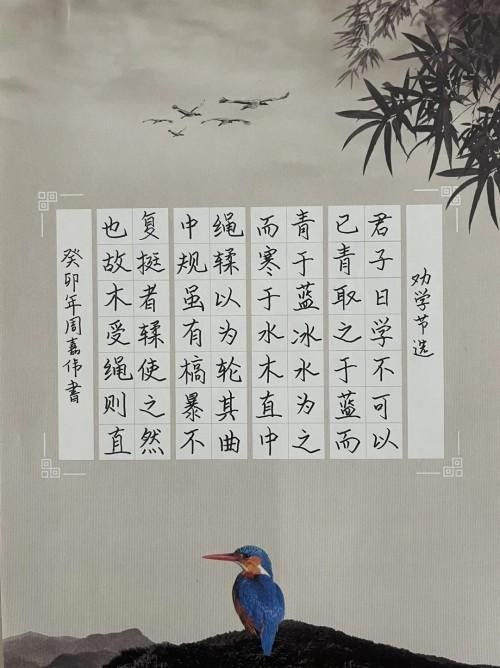 劝学节选
君子曰学不可以
已青取之于蓝而
青于蓝冰水为之
而寒于水木直中
绳𫐓以为轮其曲
中规虽有槁暴不
复挺者𫐓使之然
也故木受绳则直
癸卯年周嘉伟書